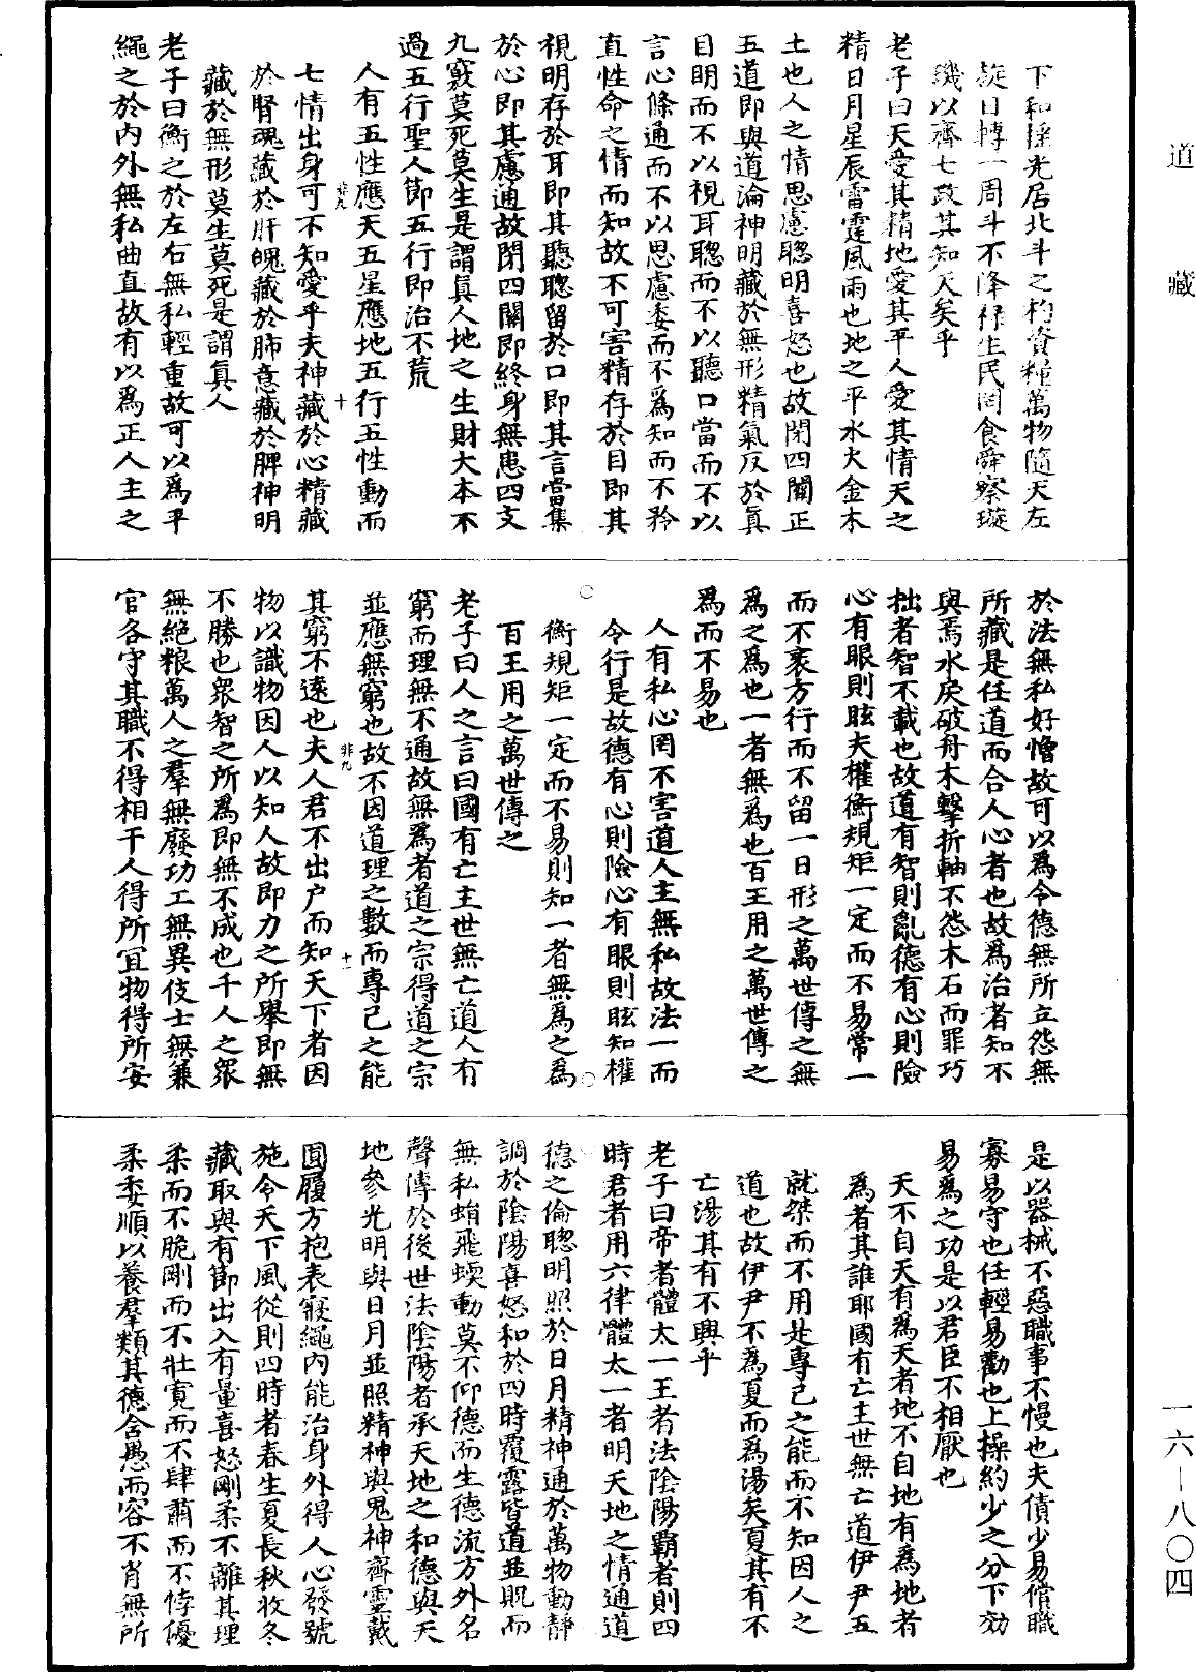 道藏
下和搖光居北斗之杓資糧萬物隨天左
旋日轉一周斗不降祿生民罔食舜察璇
璣以齊七政其知天矣乎
老子曰天愛其精地愛其平人愛其情天之
精日月星辰雷霆風雨也地之平水火金木
土也人之情思慮聰明喜怒也故閉四關正
五道即與道淪神明藏於無形精氣反於真
目眀而不以視耳聦而不以聽口當而不以
言心條通而不以思慮委而不爲知而不矜
直性命之情而知故不可害精存於目即其
視明存於耳即其聽聦留於口即其言當集
於心即其慮通故閉四關即終身無患四支
九竅莫死莫生是謂真人地之生財大本不
過五行聖人節五行即治不荒
人有五性應天五星應地五行五性動而
七情出身可不知愛乎夫神藏於心精藏
於腎魂藏於肝魄藏於肺意藏於脾神明
藏於無形莫生莫死是謂真人
老子曰衡之於左右無私輕重故可以爲平
繩之於内外無私曲直故有以爲正人主之
於法無私好憎故可以爲令德無所立怨無
所藏是任道而合人心者也故爲治者知不
與焉水戾破舟木擊折軸不怨木石而罪巧
拙者智不載也故道有智則亂德有心則險
心有眼則眩夫權衡規矩一定而不易常一
而不衺方行而不留一日形之萬世傳之無
爲之爲也一者無爲也百王用之萬世傳之
爲而不易也
人有私心罔不害道人主無私故法一而
令行是故德有心則險心有眼則眩知權
衡規矩一定而不易則知一者無爲之爲
百王用之萬世傳之
老子曰人之言曰國有亡主世無亡道人有
窮而理無不通故無爲者道之宗得道之宗
並應無窮也故不因道理之數而專己之能
其窮不遠也夫人君不出户而知天下者因
物以識物因人以知人故即力之所舉即無
不勝也衆智之所爲即無不成也千人之衆
無絕粮萬人之羣無廢功工無異伎士無兼
官各守其職不得相干人得所宜物得所安
是以器械不惡職事不慢也夫債少易償職
寡易守也任輕易勸也上操約少之分下効
易爲之功是以君臣不相厭也
天不自天有爲天者地不自地有爲地者
爲者其誰耶國有亡主世無亡道伊尹五
就桀而不用是專己之能而不知因人之
道也故伊尹不爲夏而爲湯矣夏其有不
亡湯其有不興乎
老子曰帝者體太一王者法陰陽霸者則四
時君者用六律體太一者明天地之情通道
德之倫聰明照於日月精神通於萬物動靜
調於陰陽喜怒和於四時覆露皆道並貺而
無私蜎飛蝡動莫不仰德而生德流方外名
聲傳於後世法陰陽者承天地之和德與天
地參光明與日月並照精神與鬼神齊靈戴
圓履方抱表寢繩内能治身外得人心發號
施令天下風從則四時者春生夏長秋收冬
藏取與有節出入有量喜怒剛柔不離其理
柔而不脆剛而不壯寬而不肆肅而不悖優
柔委順以養羣類其德含愚而容不肖無所
一六—八〇四